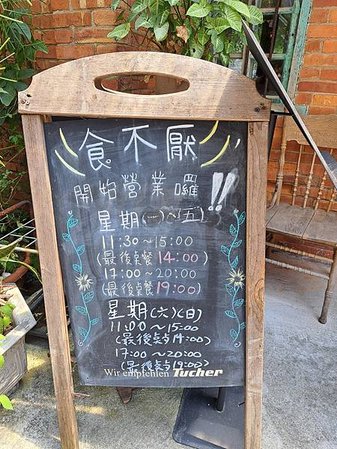 食不厭
開始營業囉!!
星期(一)~(五)
11:30~15:00
(最後点餐14:00)
17:00~20:00
(最後点餐19:00)
星期(六)(日)
11:00~15:00
(最後点餐14:00)
17:00~20:00
(最後点餐19:00)
Wir empfehlen Tucher